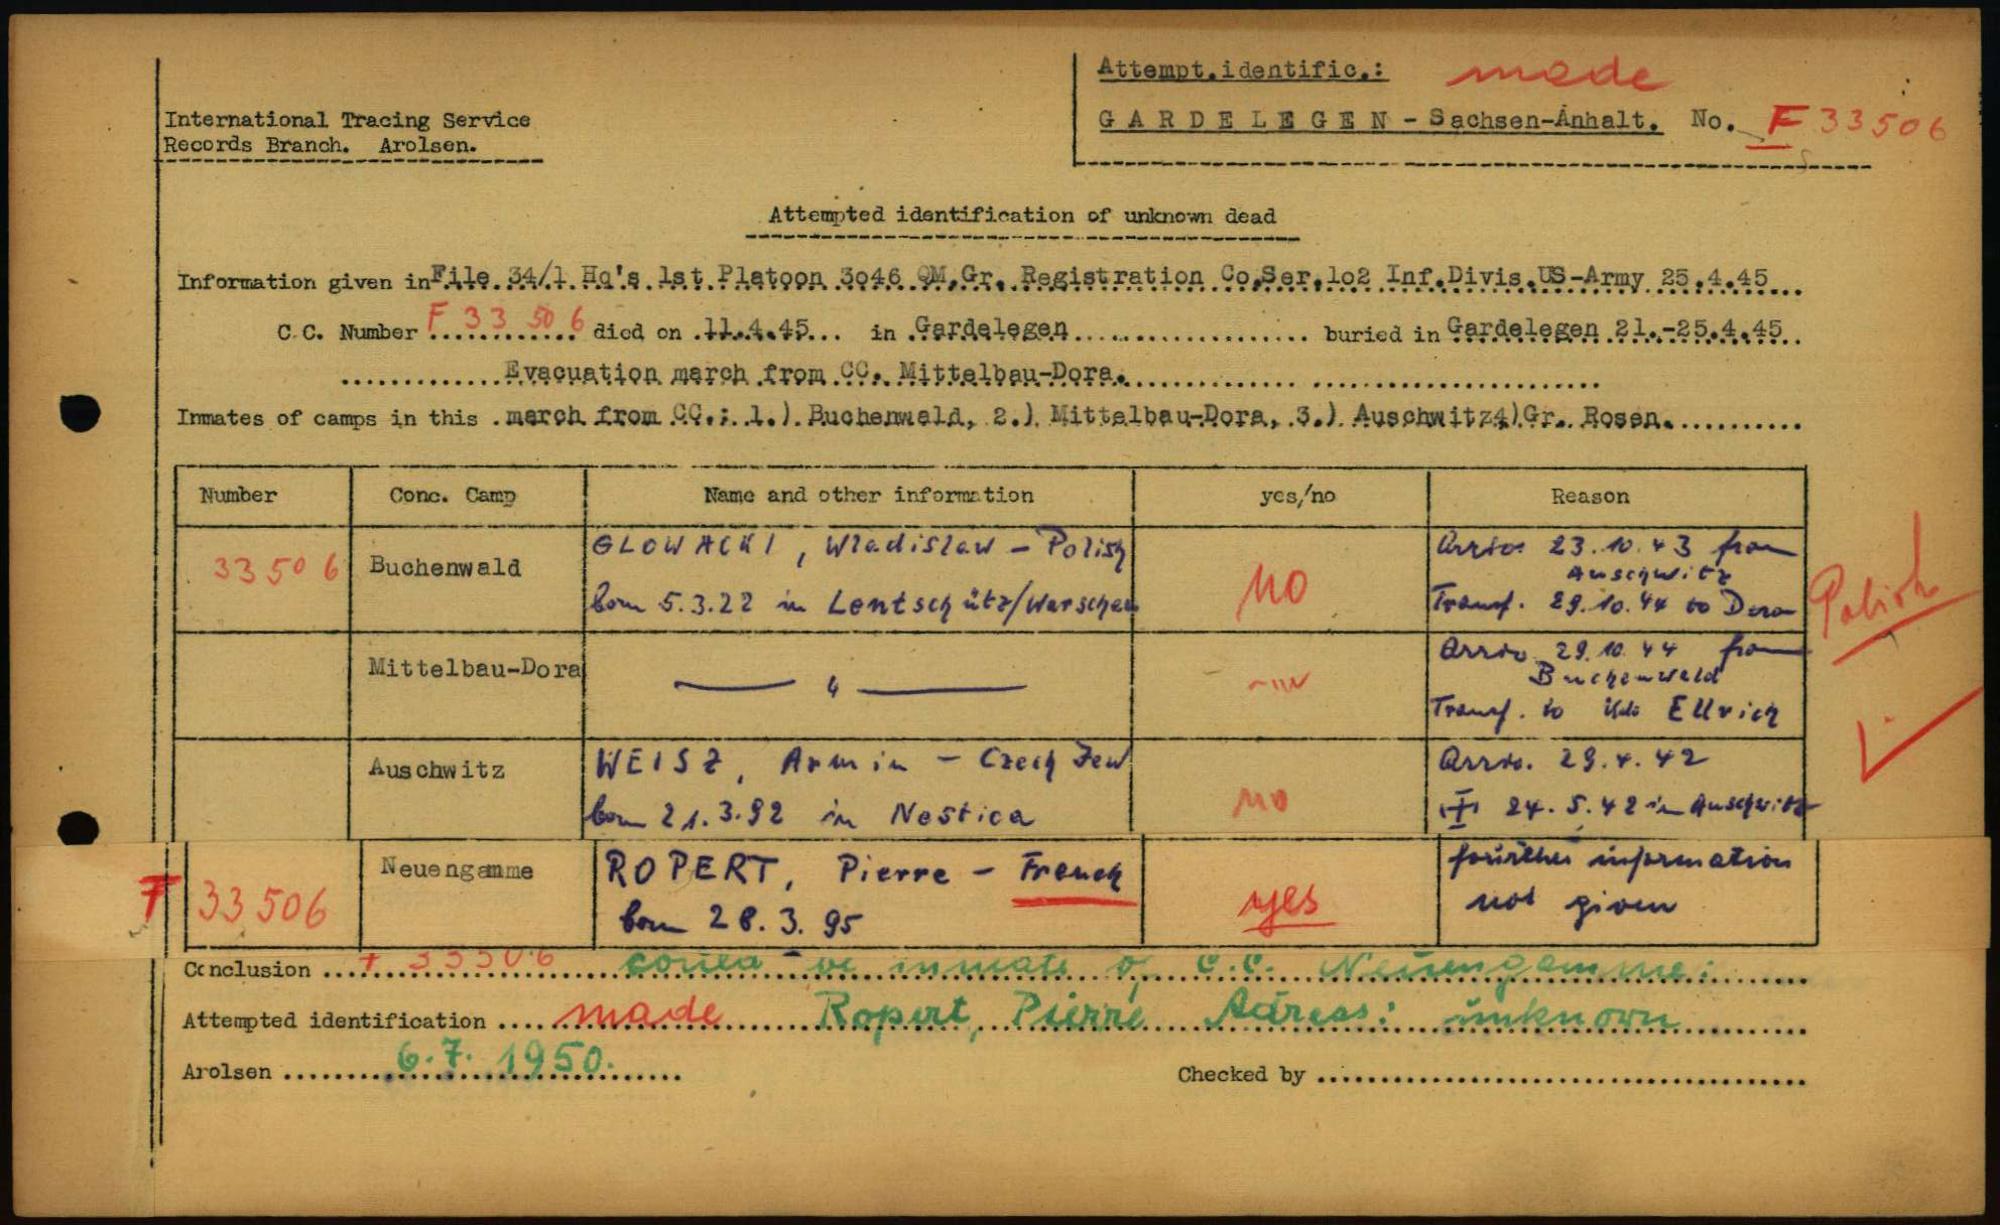 Attempt.identific.: made
International Tracing Service
Records Branch. Arolsen.
GARDELEGEN - Sachsen-Anhalt. No. F 33506
Attempted identification of unknown dead
Information given in File 34/1 Hq's 1st Platoon 3o46 QM.Gr. Registration Co.Ser.1o2 Inf.Divis.US-Army 25.4.45
C.C. Number F 33 506 died on 11.4.45 in Gardelegen buried in Gardelegen 21.-25.4.45
Evacuation march from CC. Mittelbau-Dora.
Inmates of camps in this march from CC.: 1.) Buchenwald, 2.) Mittelbau-Dora, 3.) Auschwitz4)Gr. Rosen.
Number Conc. Camp Name and other information yes/no Reason
33506 Buchenwald GLOWACKI, Wladislaw - Polish no Arriv. 23.10.43 from
Auschwitz
born 5.3.22 in Lentschütz/Warschau Transf. 29.10.44 to Dora
Polish
Mittelbau-Dora — " — Arriv. 29.10.44 from
Buchenwald
Transf. to Kdo Ellrich
Auschwitz WEISZ, Armin - Czech Jew no Arriv. 29.4.42
born 21.3.92 in Nestica 24.5.42 in Auschwitz
F 33506 Neuengamme ROPERT, Pierre - French yes fourther information
born 28.3.95 not given
Conclusion F 33506 could be inmate of C.C. Neuengamme:
Attempted identification made Ropert, Pierre Adress: unknown
Arolsen 6.7.1950. Checked by